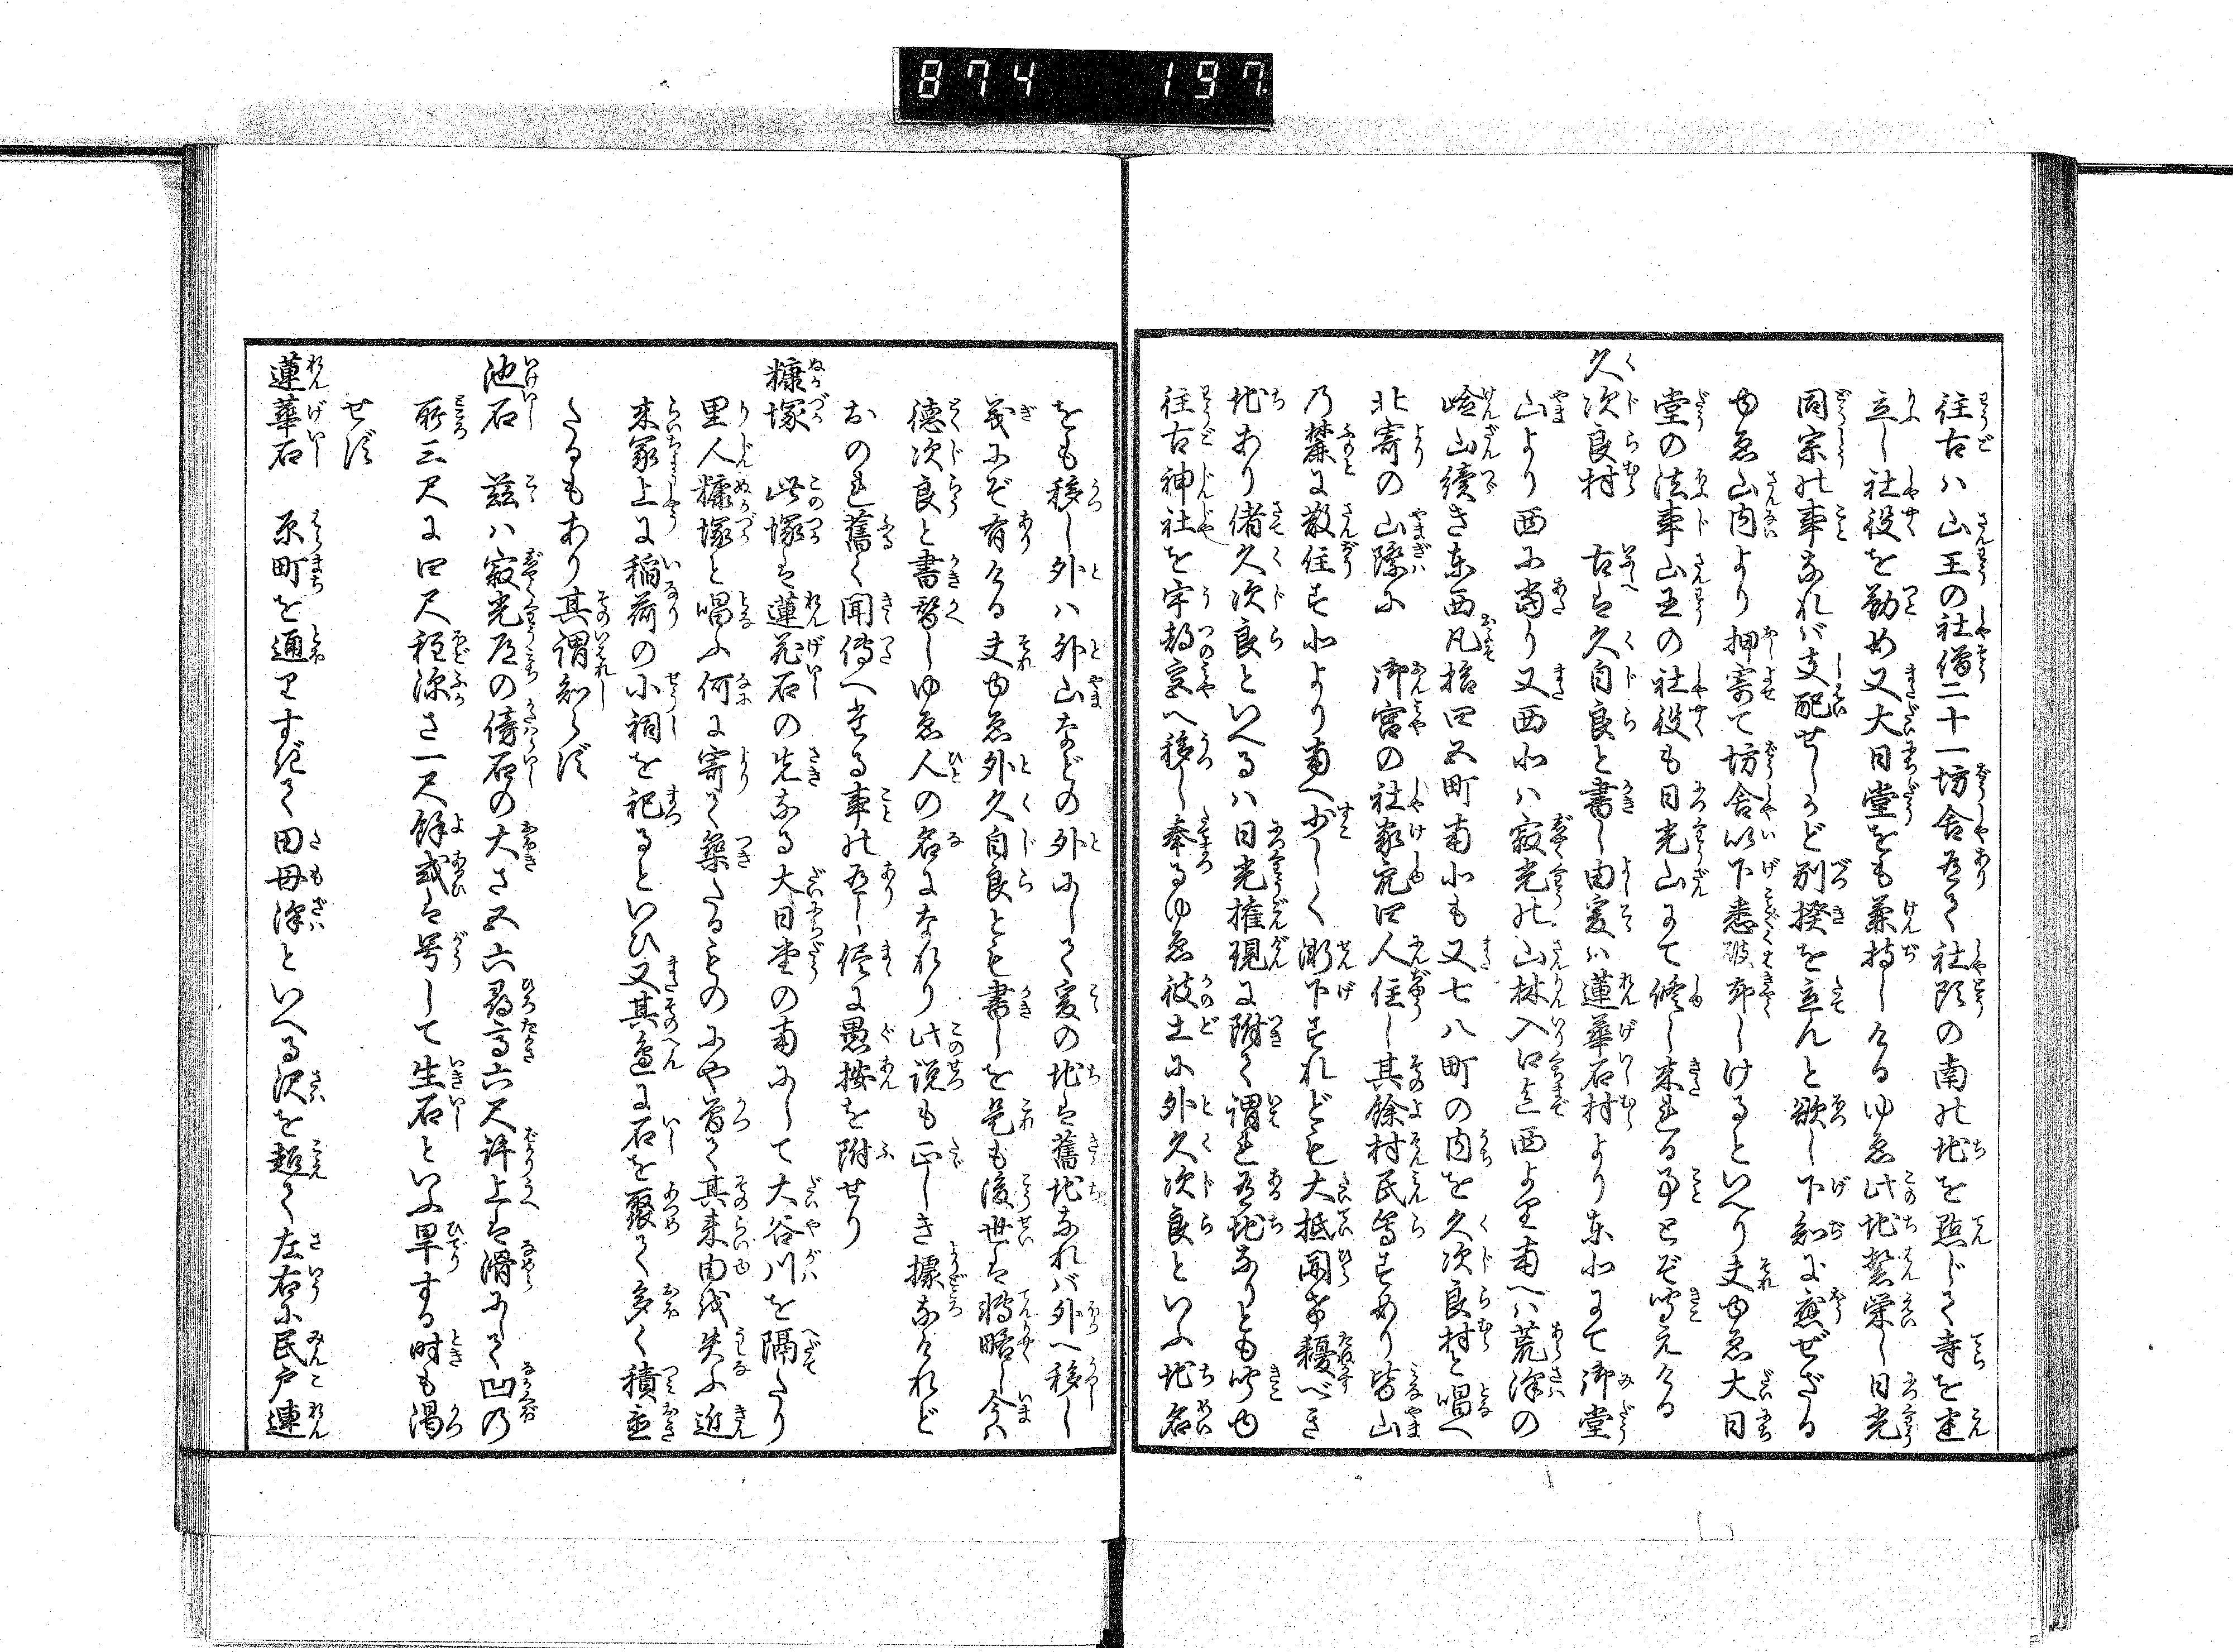 874 197.
往古ハ山王の社僧二十一坊舎有て社頭の南の地を点じて寺を建
立し社役を勤め又大日堂をも兼持しけるゆゑ此地繁栄し日光
同宗の事なれバ支配せしかど別揆を立んと欲し下知に応ぜざる
ゆゑ山内より押寄て坊舎以下悉破却しけるといへり夫ゆゑ大日
堂の法事山王の社役も日光山にて修し来れる事とぞ聞えける
久次良村 古は久自良と書し由爰ハ蓮華石村より東北にて御堂
山より西に当り又西北ハ寂光の山林入口迄西より南へハ荒沢の
嶮山続き東西凡拾四五町南北も又七八町の内を久次良村と唱へ
北寄の山際に 御宮の社家宛四人住し其餘村民等すめり皆山
乃麓に散住す北より南へ少しく漸下すれども大抵開き耰べき
地あり偖久次良といへるハ日光権現に附て謂れ有地なりとも聞ゆ
往古神社を宇都宮へ移し奉るゆゑ彼土に外久次良といふ地名
をも移し外ハ外山などの外にして爰の地は舊地なれバ外へ移し
義にぞ有ける夫ゆゑ外久自良とも書しを是も後世は轉略し今ハ
徳次良と書替しゆゑ人の名になれり此説も正しき據なけれど
おのれ舊く聞傳へたる事の有し侭に愚按を附せり
糠塚 此塚は蓮花石の先なる大日堂の南にして大谷川を隔たり
里人糠塚と唱ふ何に寄て築たるものにや曽て其来由を失ふ近
来冢上に稲荷の小祠を祀るといひ又其邊に石を聚て多く積並
たるもあり其謂知らず
池石 茲ハ寂光道の傍石の大さ五六尋高六尺許上は滑にして凹の
所三尺に四尺程深さ一尺餘或は号して生石といふ旱する時も渇
せず
蓮華石 原町を通りすぎて田母沢といへる沢を超て左右に民戸連